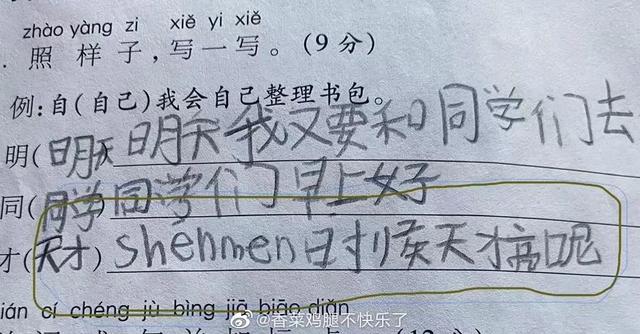 zhào yàng zi xiě yi xiě
. 照样子,写一写。(9 分)
例:自(自己)我会自己整理书包。
明(明天)明天我又要和同学们去
同(同学)同学们早上好
才(天才)shenmen时候天才搞呢
ián cí chéng jù bìng jiā biāo diǎn
@香菜鸡腿不快乐了